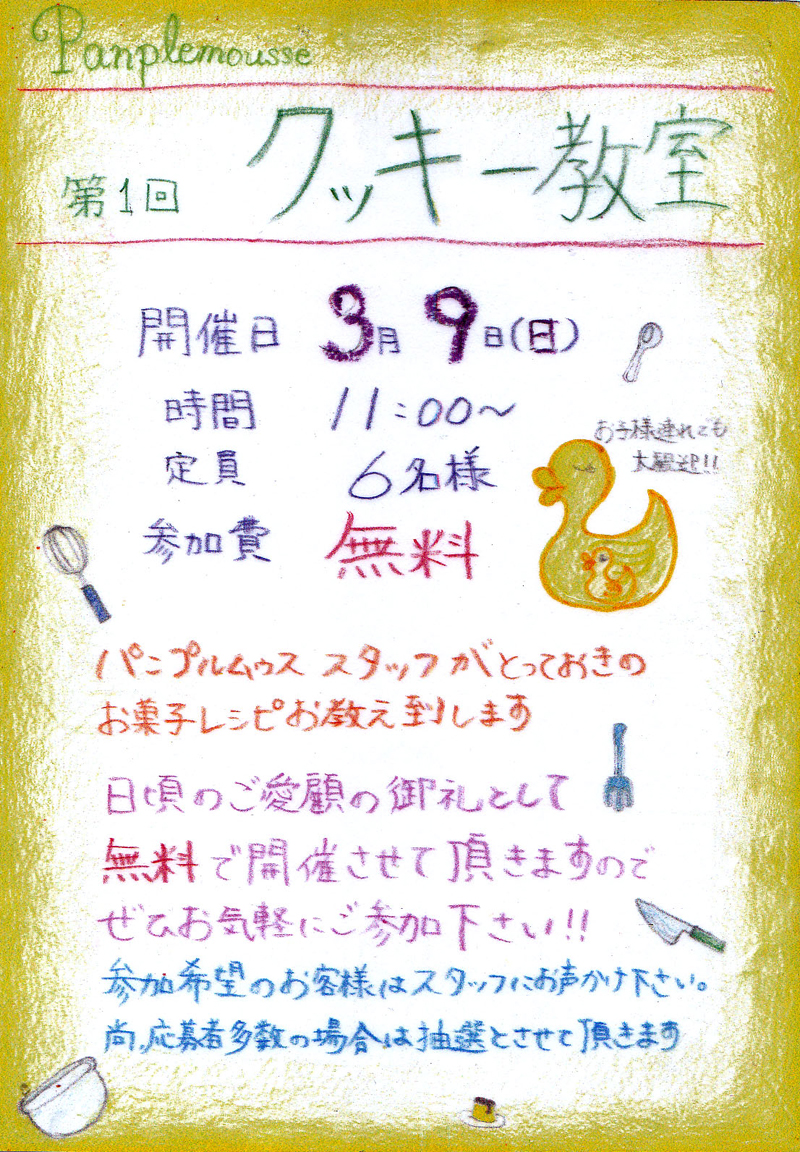 Panplemousse
第1回 クッキー教室
開催日 3月9日(日)
時間 11:00～
定員 6名様
お子様連れでも
大歓迎!!
参加費 無料
パンプルムゥス スタッフがとっておきの
お菓子レシピお教え到します
日頃のご愛顧の御礼として
無料で開催させて頂きますので
ぜひお気軽にご参加下さい!!
参加希望のお客様はスタッフにお声かけ下さい。
尚、応募者多数の場合は抽選とさせて頂きます